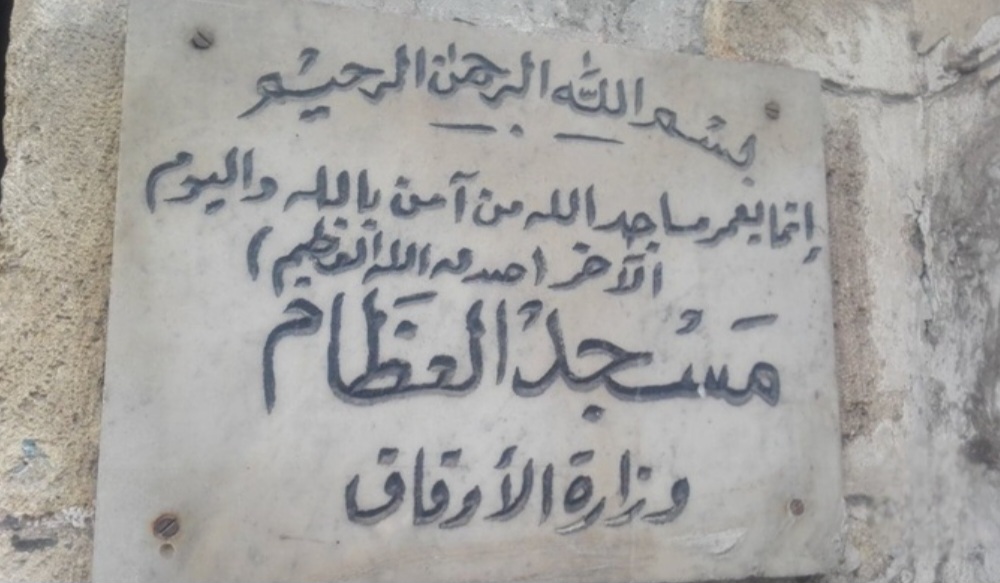 بسم الله الرحمن الرحيم
إنما يعمر مساجد الله من آمن بالله واليوم
الآخر (صدق الله العظيم)
مَسْجدْ العَظَام
وزارة الأوقاف